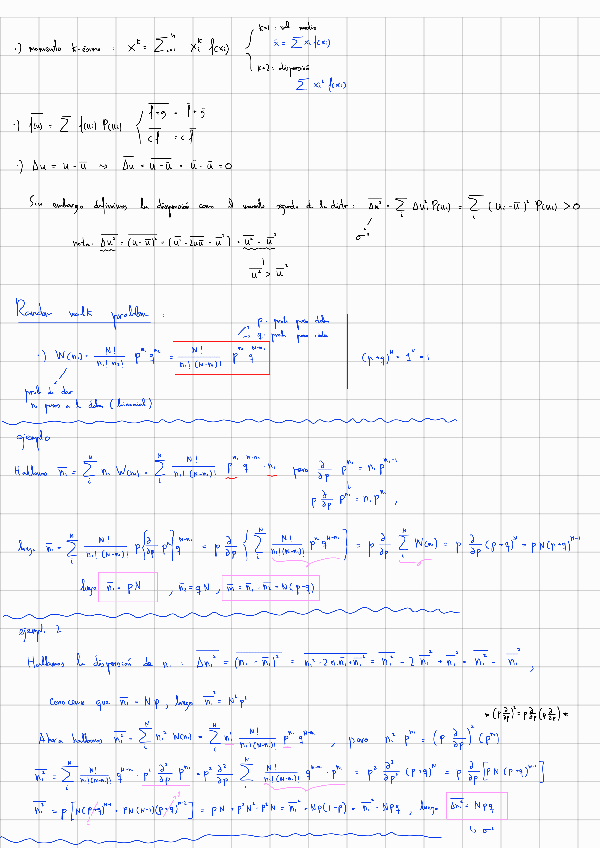 ·) momento k-ésimo : x̄^k = Σ... x_i^k f(x_i) { k=1 : val medio
x̄ = Σ x_i f(x_i)
k=2 : dispersión
Σ x_i² f(x_i)
·) \overline{f(u)} = Σ f(u_i) P(u_i) { \overline{f+g} = \bar f + \bar g
\overline{cf} = c \bar f
·) Δu = u - ū ⇝ \overline{Δu} = \overline{u - ū} = ū - ū = 0
Sin embargo definimos la dispersión como el momento segundo de la distr : \overline{Δu²} = Σ_i Δu_i² P(u_i) = Σ_i (u_i - ū)² P(u_i) > 0
σ²
nota: \overline{Δu²} = \overline{(u - ū)²} = \overline{(u² - 2uū + ū²)} = \overline{u²} - ū²
\overline{u²} > ū²
Random walk problem :
p : prob paso dcha
q : prob paso izda
·) W(n₁) = N!/(n₁! n₂!) p^{n₁} q^{n₂} = N!/(n₁! (N-n₁)!) p^{n₁} q^{N-n₁} (p+q)^N = 1^N = 1
prob de dar
n₁ pasos a la dcha (binomial)
ejemplo
Hallamos n̄₁ = Σ n₁ W(n₁) = Σ N!/(n₁! (N-n₁)!) p^{n₁} q^{N-n₁} · n₁ pero ∂/∂p p^{n₁} = n₁ p^{n₁-1}
p ∂/∂p p^{n₁} = n₁ p^{n₁} ,
luego n̄₁ = Σ N!/(n₁! (N-n₁)!) p [∂/∂p p^{n₁}] q^{N-n₁} = p ∂/∂p { Σ [N!/(n₁! (N-n₁)!) p^{n₁} q^{N-n₁}] } = p ∂/∂p Σ W(n₁) = p ∂/∂p (p+q)^N = pN(p+q)^{N-1}
luego n̄₁ = pN , n̄₂ = qN , m̄ = n̄₁ - n̄₂ = N(p-q)
ejemplo 2
Hallamos la dispersión de n₁ : \overline{Δn₁²} = \overline{(n₁ - n̄₁)²} = \overline{n₁² - 2n₁n̄₁ + n̄₁²} = \overline{n₁²} - 2n̄₁² + n̄₁² = \overline{n₁²} - n̄₁² ,
conocemos que n̄₁ = Np , luego n̄₁² = N²p²
* (p ∂/∂p)² = p ∂/∂p (p ∂/∂p) *
Ahora hallamos \overline{n₁²} = Σ n₁² W(n₁) = Σ n₁² N!/(n₁! (N-n₁)!) p^{n₁} q^{N-n₁} , pero n₁² p^{n₁} = (p ∂/∂p)² (p^{n₁})
\overline{n₁²} = Σ N!/(n₁! (N-n₁)!) q^{N-n₁} · p² ∂²/∂p² p^{n₁} = p² ∂²/∂p² Σ N!/(n₁! (N-n₁)!) q^{N-n₁} · p^{n₁} = p² ∂²/∂p² (p+q)^N = p ∂/∂p [pN(p+q)^{N-1}]
\overline{n₁²} = p [N(p+q)^{N-1} + pN(N-1)(p+q)^{N-2}] = pN + p²N² - p²N = n̄₁² + Np(1-p) = n̄₁² + Npq , luego \overline{Δn₁²} = Npq
↳ σ²